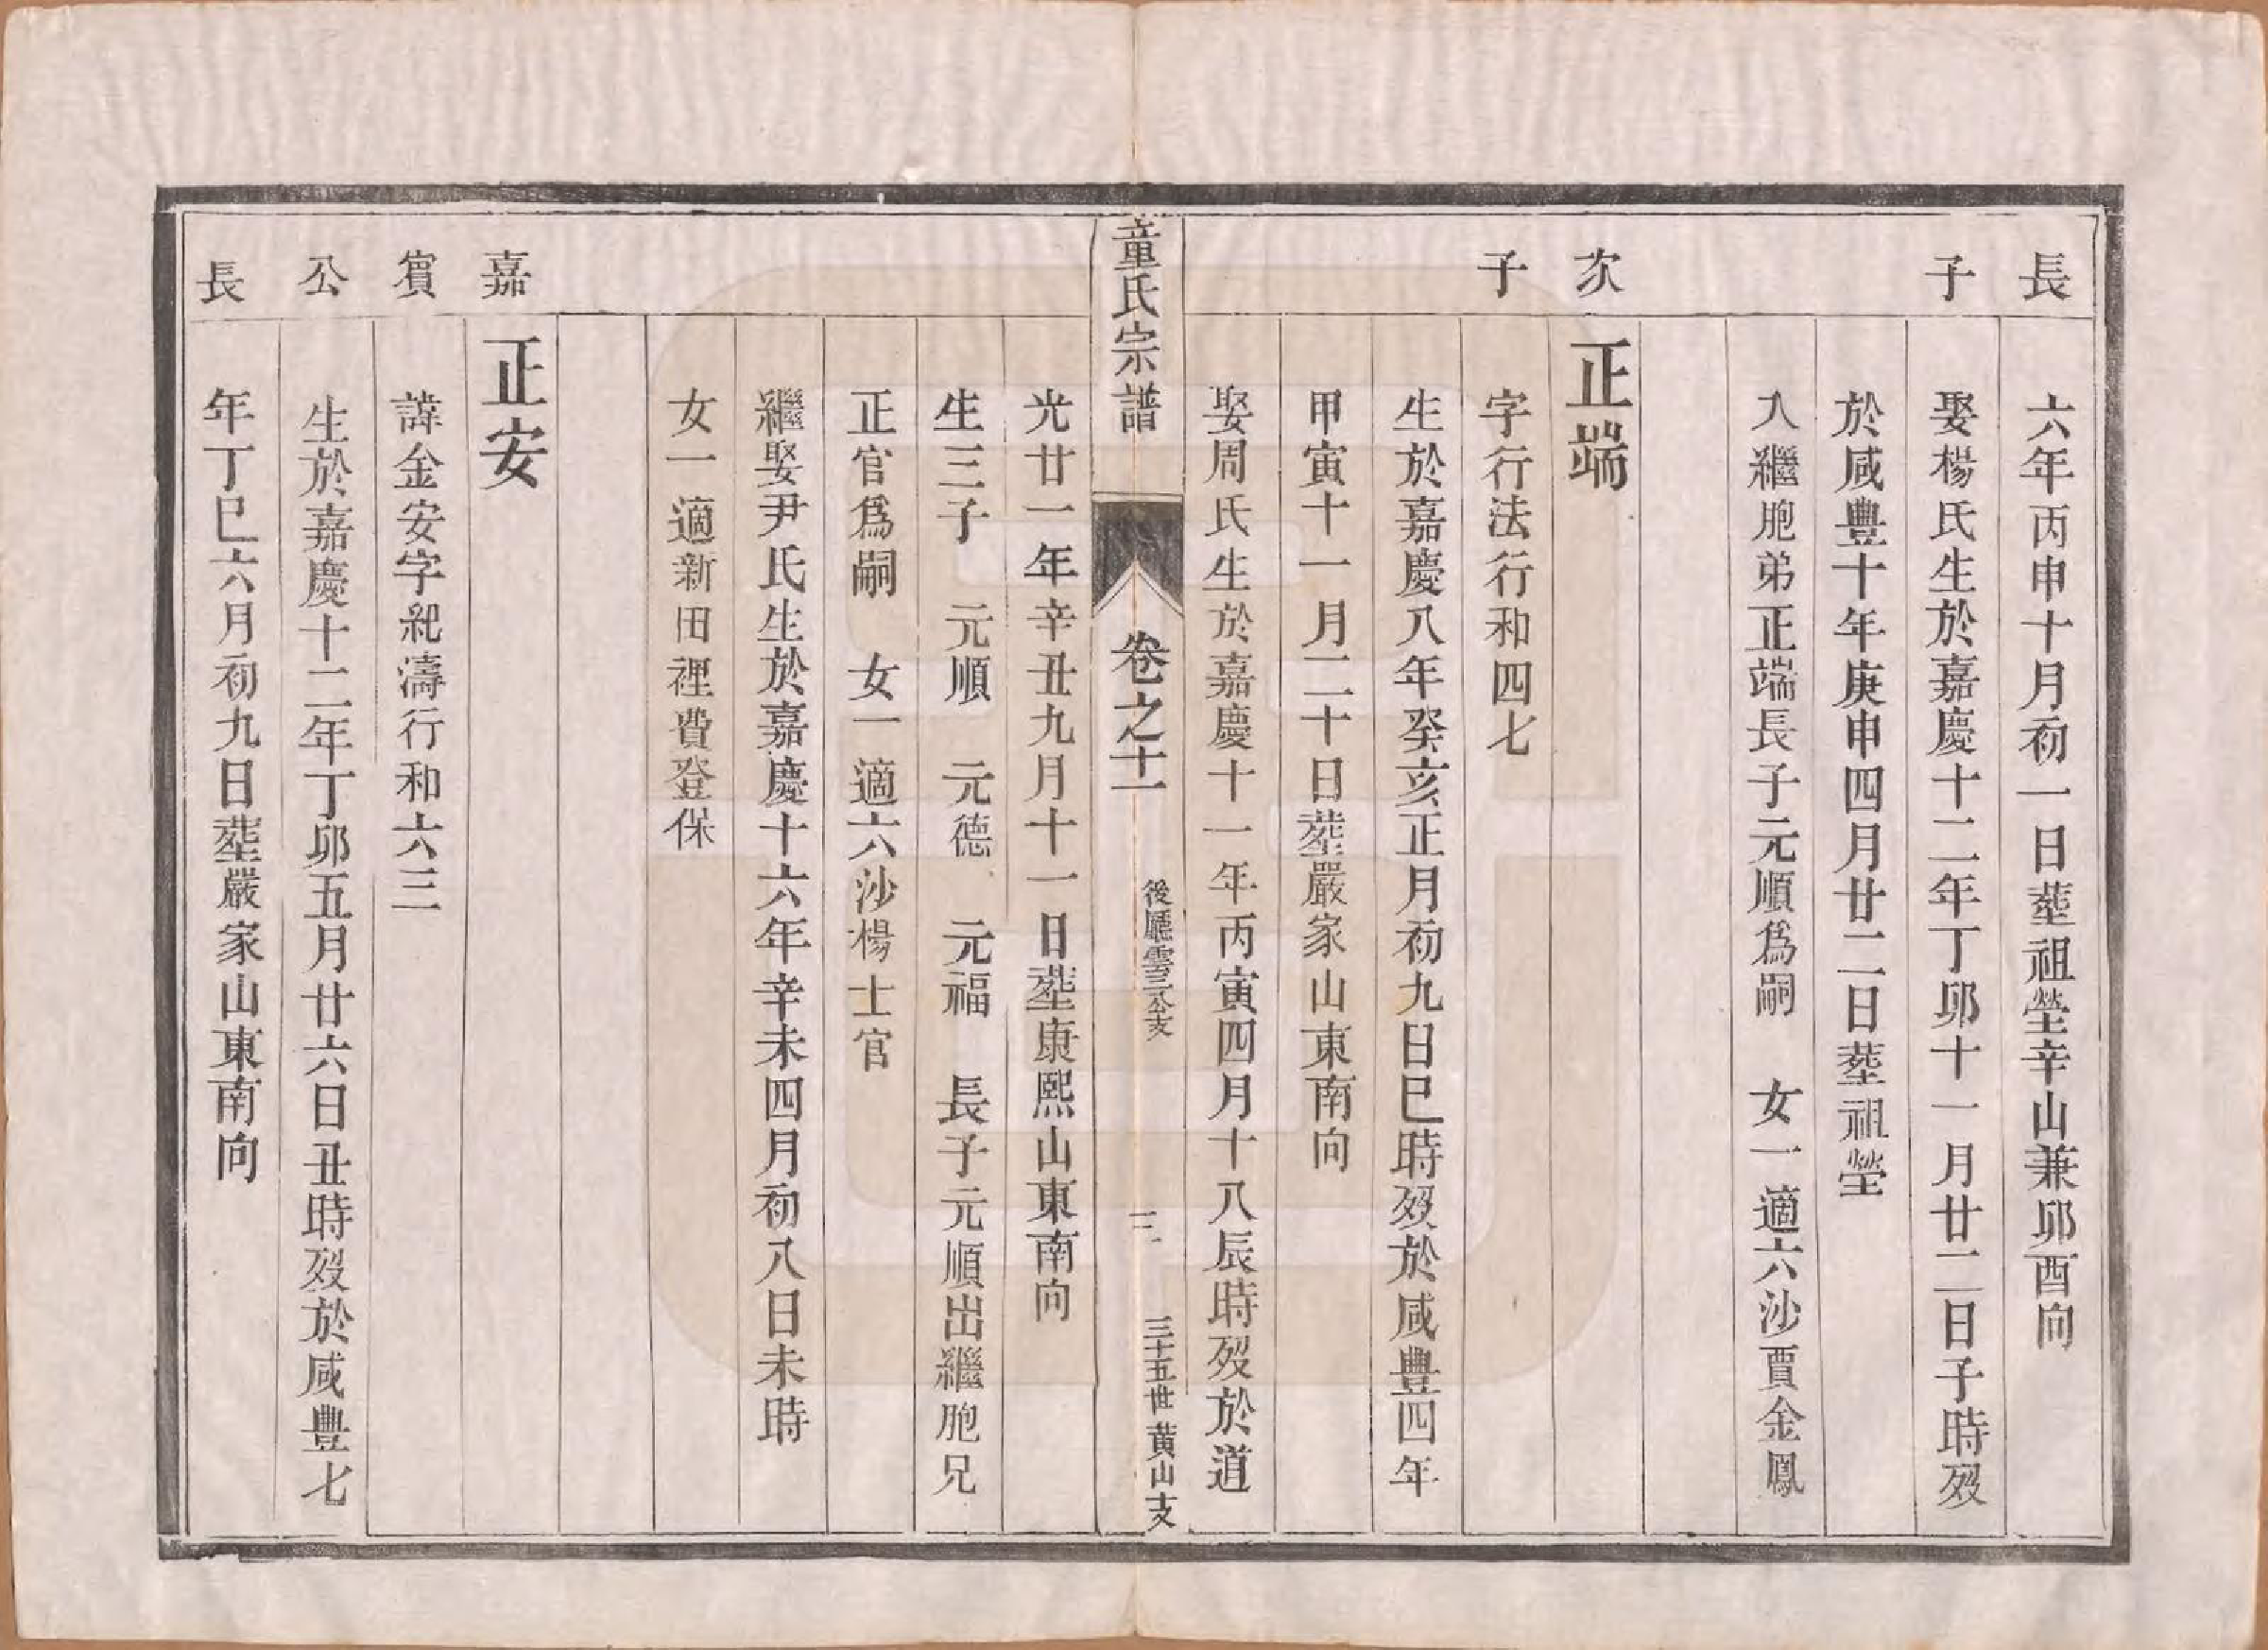 長
六年丙申十月初一日塟祖塋辛山兼邜酉向
子
娶楊氏生於嘉慶十二年丁邜十一月廿二日子時歿
於咸豐十年庚申四月廿二日塟祖塋
入繼胞弟正端長子元順爲嗣　女一適六沙賈金鳳
次
正端
子
字行法行和四七
生於嘉慶八年癸亥正月初九日巳時歿於咸豊四年
甲寅十一月二十日塟嚴家山東南向
娶周氏生於嘉慶十一年丙寅四月十八辰時歿於道
童氏宗譜
卷之十一
後廳雲三公支
三
三十五世黃山支
光廿一年辛丑九月十一日塟康熙山東南向
生三子　元順　元德　元福　長子元順出繼胞兄
正官爲嗣　女一適六沙楊士官
繼娶尹氏生於嘉慶十六年辛未四月初八日未時
女一適新田裡費登保
嘉
正安
賔
諱金安字紀濤行和六三
公
生於嘉慶十二年丁卯五月廿六日丑時歿於咸豐七
長
年丁巳六月初九日塟嚴家山東南向